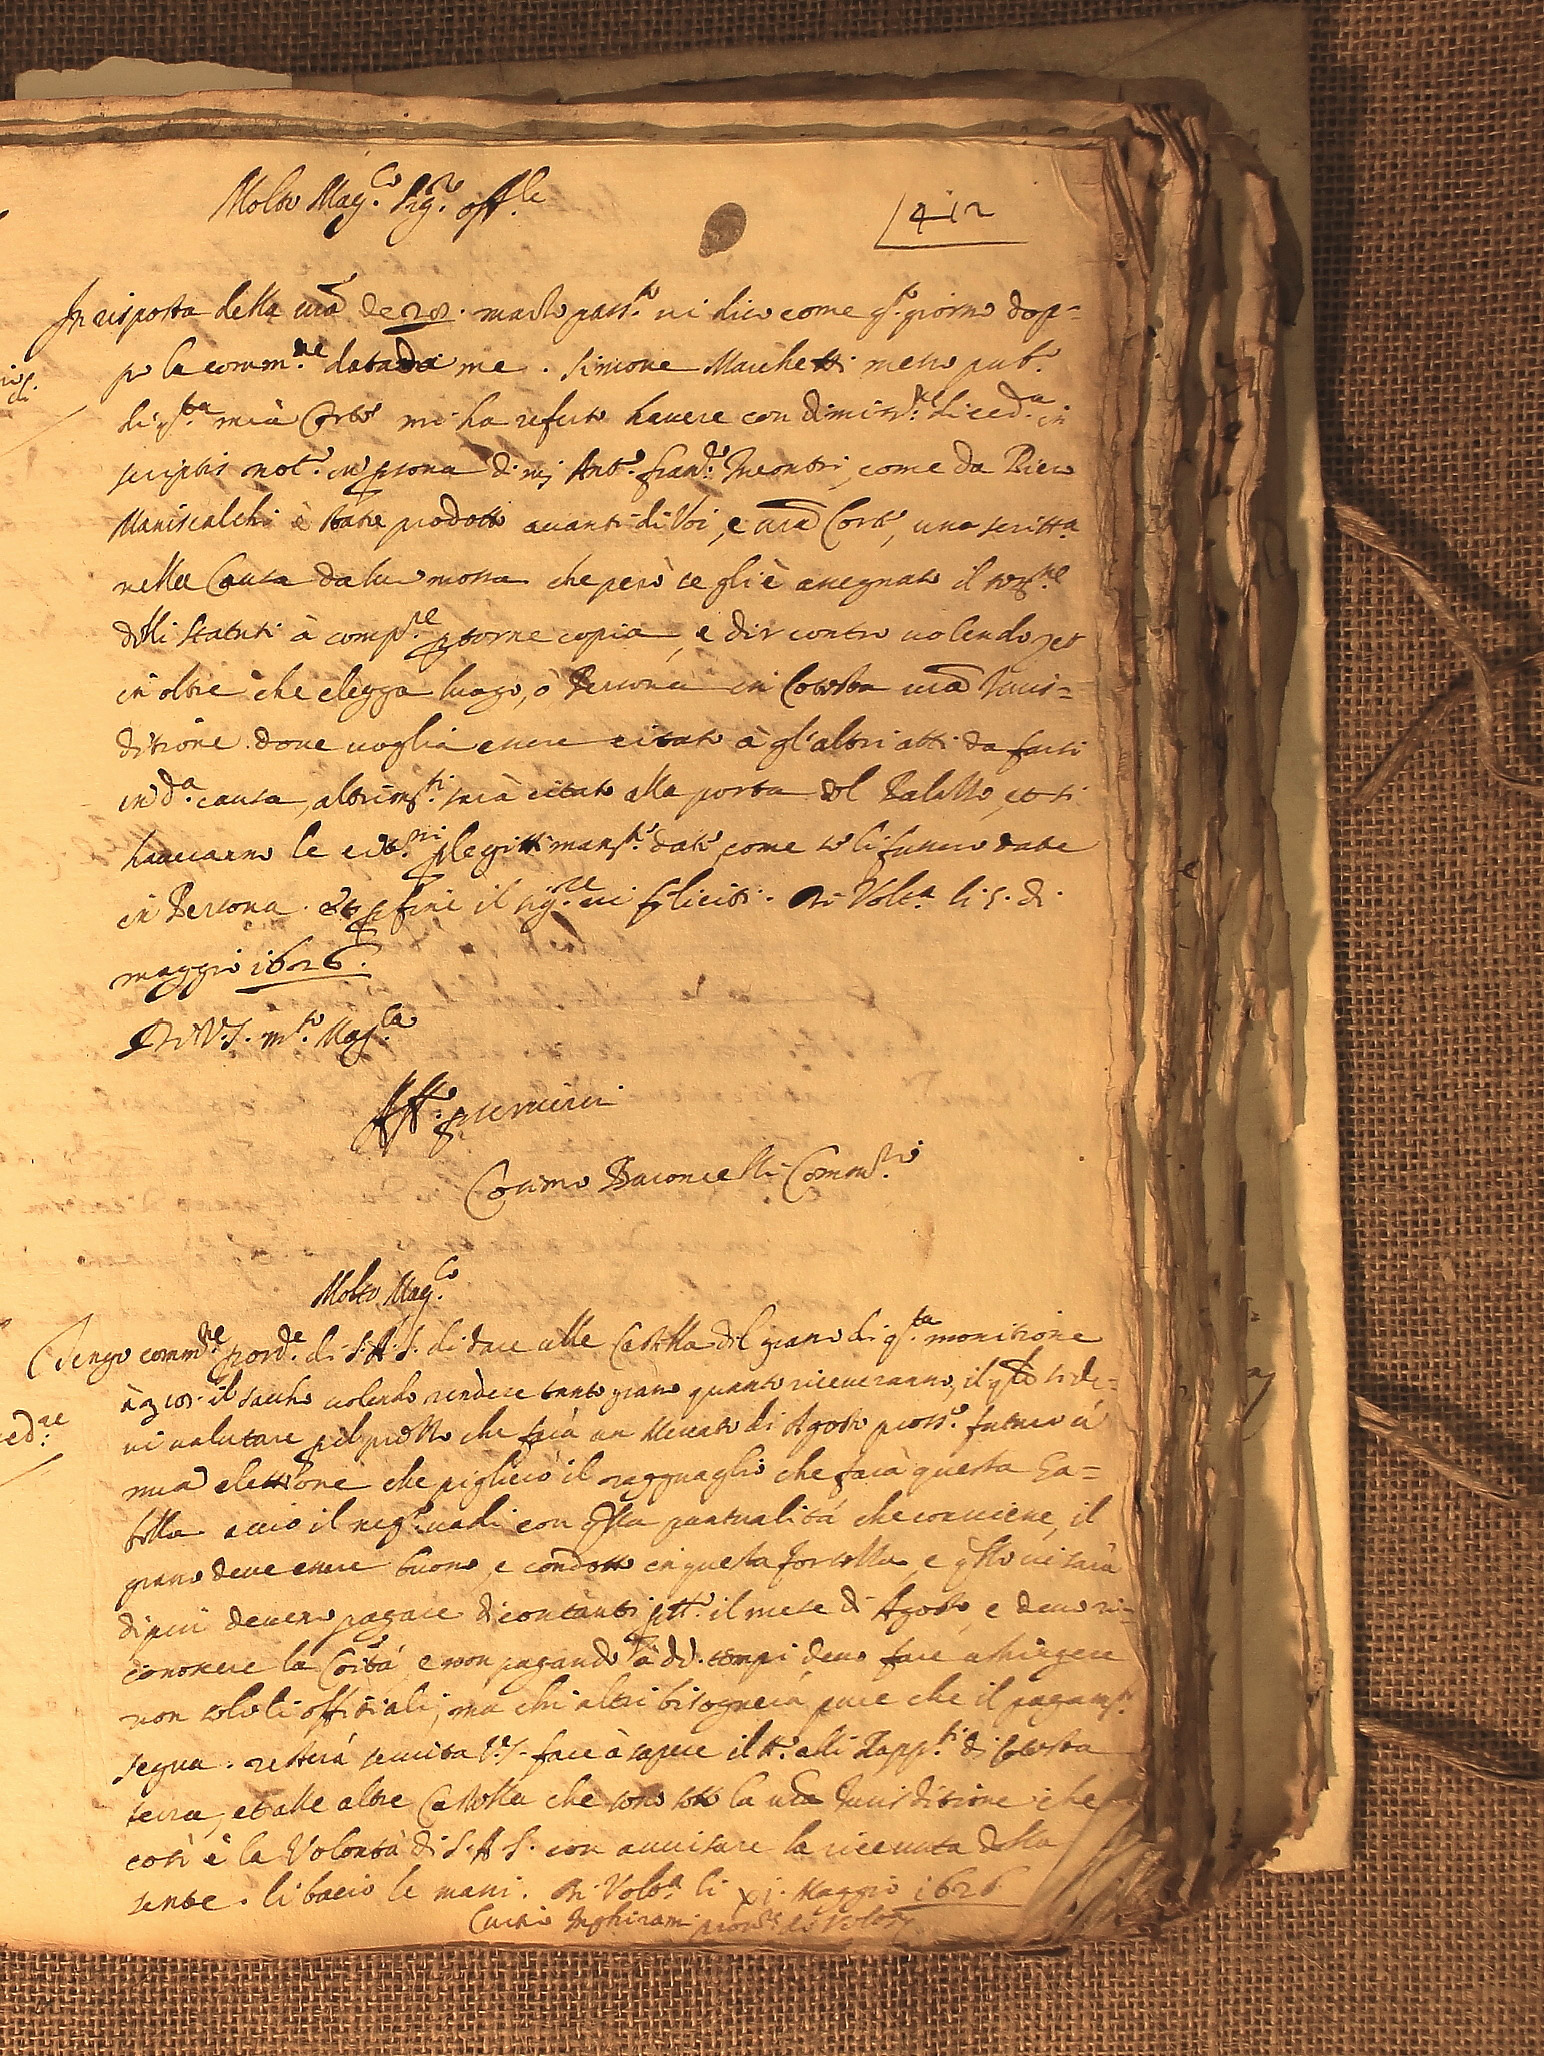 Molto Mag.co Sig.re off.le
412
In risposta della vrã de 28. marzo pass.to vi dico come q.to giorno dop=
po la comm.ne datada me. Simone Marchetti messo pub.o
di q.ta mia Corte mi ha referto havere con dimiss.ne di ced.a in
scriptis not.o in psona di mj Ant.o Fran.co Incontri, come da Piero
Maniscalchi è state prodotto avanti di Voi, e vrã Corte, una scritt.a
nella Causa da lui mossa che però se gli è assegnato il term.ne
delli statuti à comp.re ptorne copia, e dir contro volendo, et
in oltre che elegga luogo, ò Persona in Cotesta vrã Iuris=
ditione dove voglia essere citato à gl'altri atti da farsi
in d.a causa, altrim.ti sarà citato alla porta del Palazzo, et ti
haveranno le cit.ni plegittimam.te date come se li fussero date
in Persona. Et p fine il sig.re vi feliciti. Di Volt.a li 5. di
maggio 1626.
Di V.S. m.to Mag.ca
Aff. p servirvi
Cosimo Baroncelli Comm.rio
Molto Mag.co
Tengo comm.ne p ord.e di S.A.S. di dare alle Castella del grano di q.ta monitione
il sacho volendo rendere tanto grano quanto riceveranno, il q.le si de=
vi valutare pel prezzo che sarà un Mercato di Agosto pross.o futuro à
mia elettione che piglierò il ragguaglio che farà questa Ga=
bella acciò il neg.o vadi con q.lla puntualità che conviene, il
grano deve essere buono, e condotto in questa fortezza, e q.llo vi sarà
di più devere pagare di contanti p tt.o il mese di Agosto, e devo ri=
conoscere la Coĩtà, e non pagando à dd. tempi devo fare astringere
non solo li offitiali, ma chi altri bisognerà, pure che il pagam.to
segua. resterà servita V.S. fare à sapere il tt.o alli Rapp.ti di Cotesta
terra, et alle altre Castella che sono sotto la vrã Iurisditione che
così è la Volontà di S.A.S. con avvisare la ricevuta della
sente. li bacio le mani. Di Volt.a li xi. Maggio 1626
Curtio Inghirami prov.re di Volt.a